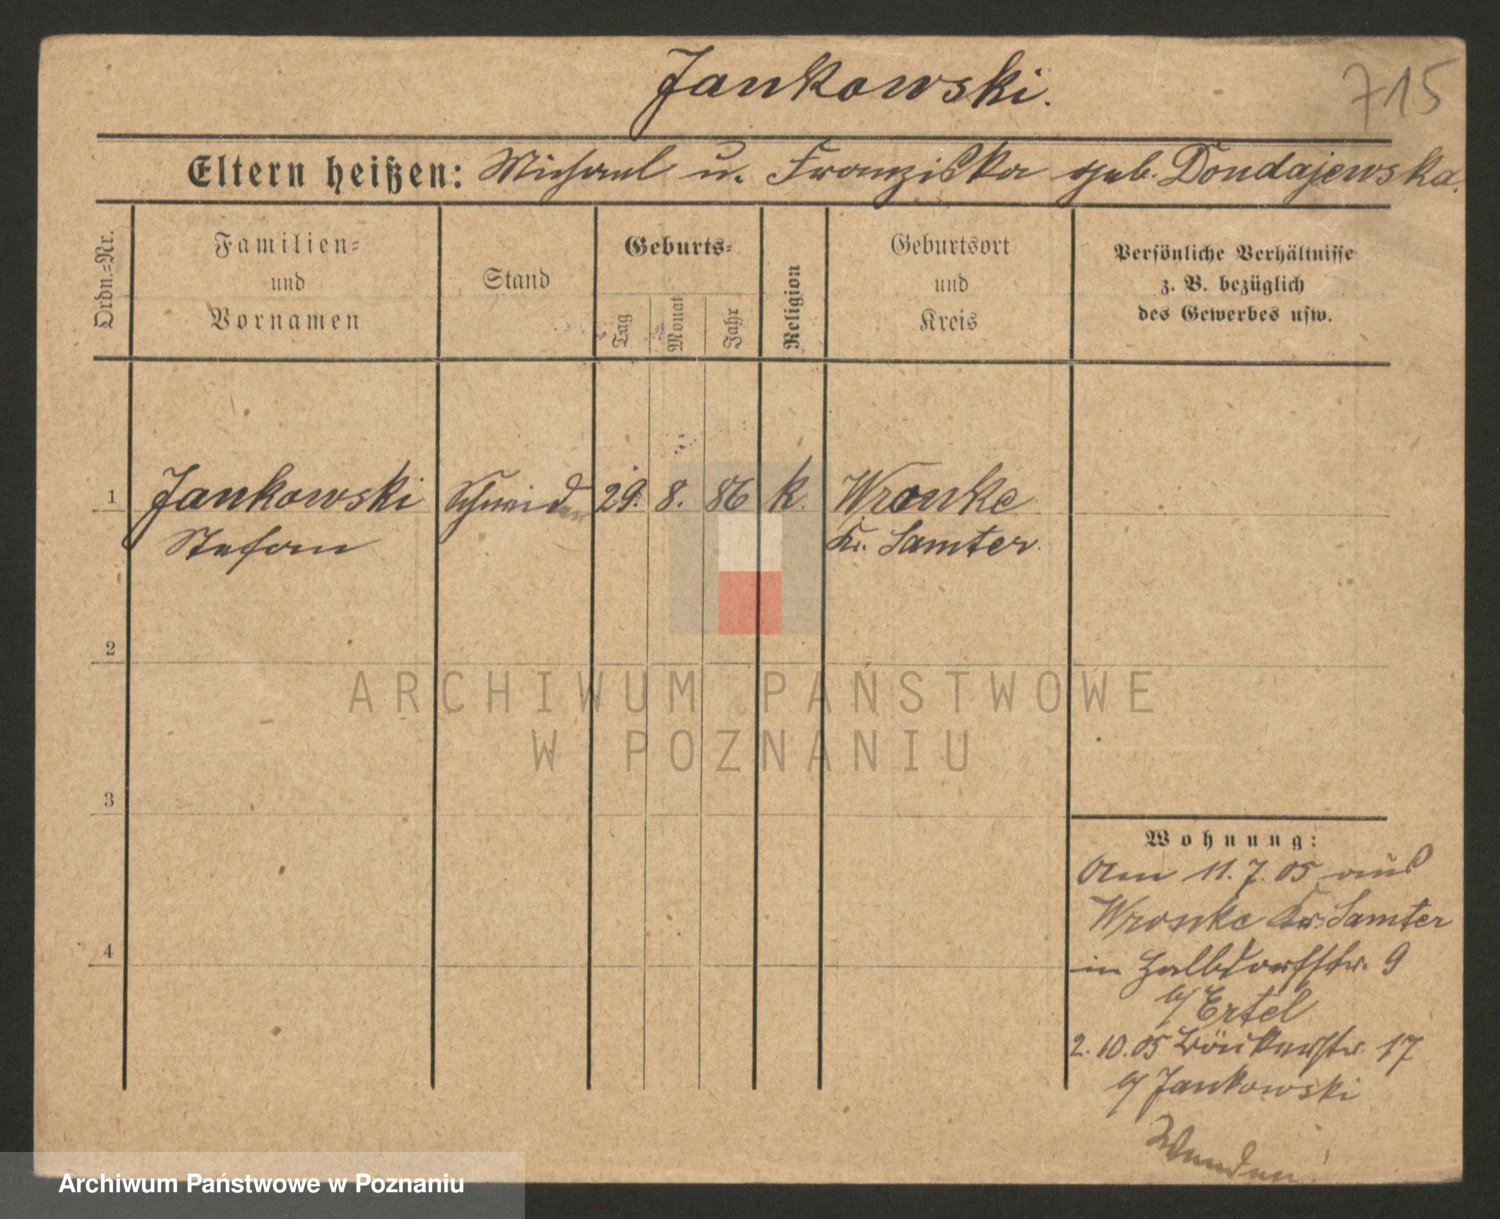 Jankowski.
715
Eltern heißen: Michael u. Franziska geb. Dondajewska.
Ordn.=Nr.
Familien=
und
Vornamen
Stand
Geburts=
Tag
Monat
Jahr
Religion
Geburtsort
und
Kreis
Persönliche Verhältnisse
z. B. bezüglich
des Gewerbes usw.
1 Jankowski Schneider 29. 8. 86 k. Wronke
Stefan Kr. Samter.
2
3
4
Wohnung:
Am 11. 7. 05 aus
Wronke Kr. Samter
in Halbdorfstr. 9
b/ Ertel
2. 10. 05 Bäckerstr. 17
b/ Jankowski
Wenden!
ARCHIWUM PAŃSTWOWE
W POZNANIU
Archiwum Państwowe w Poznaniu